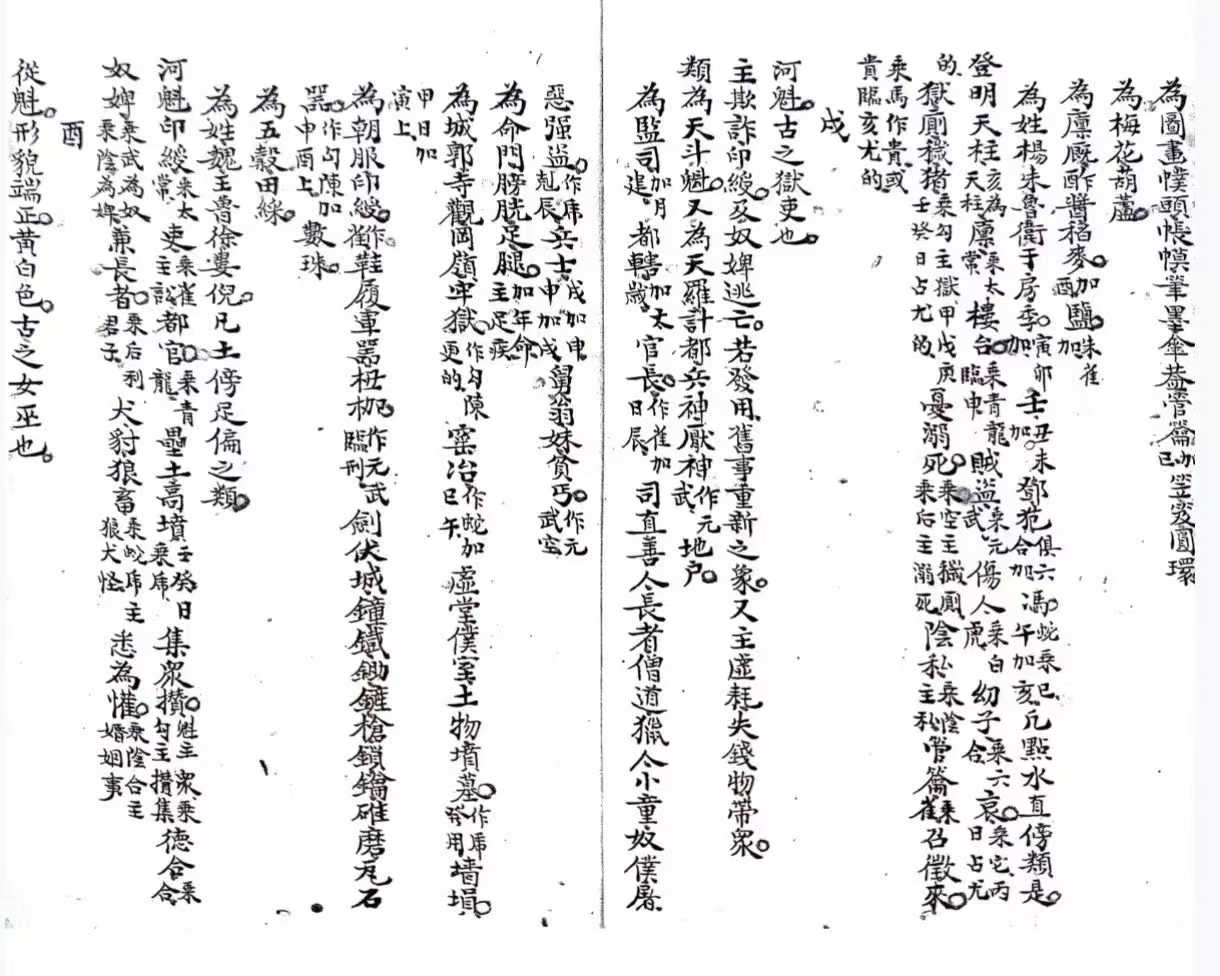 為圖畫幞頭帳幙筆墨傘蓋管籥加巳笠冠圓環
為梅花葫蘆
為廩廐酢醬稻麥加酉鹽朱雀加
為姓楊朱魯衛于房季寅卯加壬丑未加鄧范俱六合加馮蛇乘巳午加亥凡點水直傍類是
登明天柱亥為天柱廩乘太常樓台乘青龍臨申賊盜乘元武傷人乘白虎幼子乘六合哀乘空丙日占尤
的獄廁穢猪乘勾主獄甲戊庚壬癸日占尤的憂溺死乘空主穢廁乘后主溺死陰私乘陰主私管籥乘雀召徵來
乘馬作貴或貴臨亥尤的
戌
河魁古之獄吏也
主欺詐印綬及奴婢逃亡若發用舊事重新之象又主虛耗失錢物帶衆
類為天斗魁又為天羅計都兵神厭神作元武地戶
為監司加月建都轄加太歲官長作雀加日辰司直善人長者僧道獵人小童奴僕屠
惡强盜作虎尅辰兵士戌加申申加戌舅翁妹貧丐作元武空
為命門膀胱足腿加年命主足疾
為城郭寺觀岡嶺牢獄作勾陳更的窯冶作蛇加巳午虛堂僕室土物墳墓作虎發用墻塤
甲日加寅上
為朝服印綬作雀鞋履軍器杻枷作元武臨刑劍伏城鐘鐵鋤鏙槍鎖鑰碓磨瓦石
器作勾陳加申酉上數珠
為五穀田綵
為姓魏王魯徐婁倪凡土傍足偏之類
河魁印綬乘太常吏乘雀主訟都官乘青龍壘土高墳壬癸日乘虎集衆攢魁主衆乘勾主攢集德合乘合
奴婢乘武為奴乘陰為婢兼長者乘后利君子犬豺狼畜乘蛇虎主狼犬怪悉為懽乘陰合主婚姻事
酉
從魁形貌端正黃白色古之女巫也